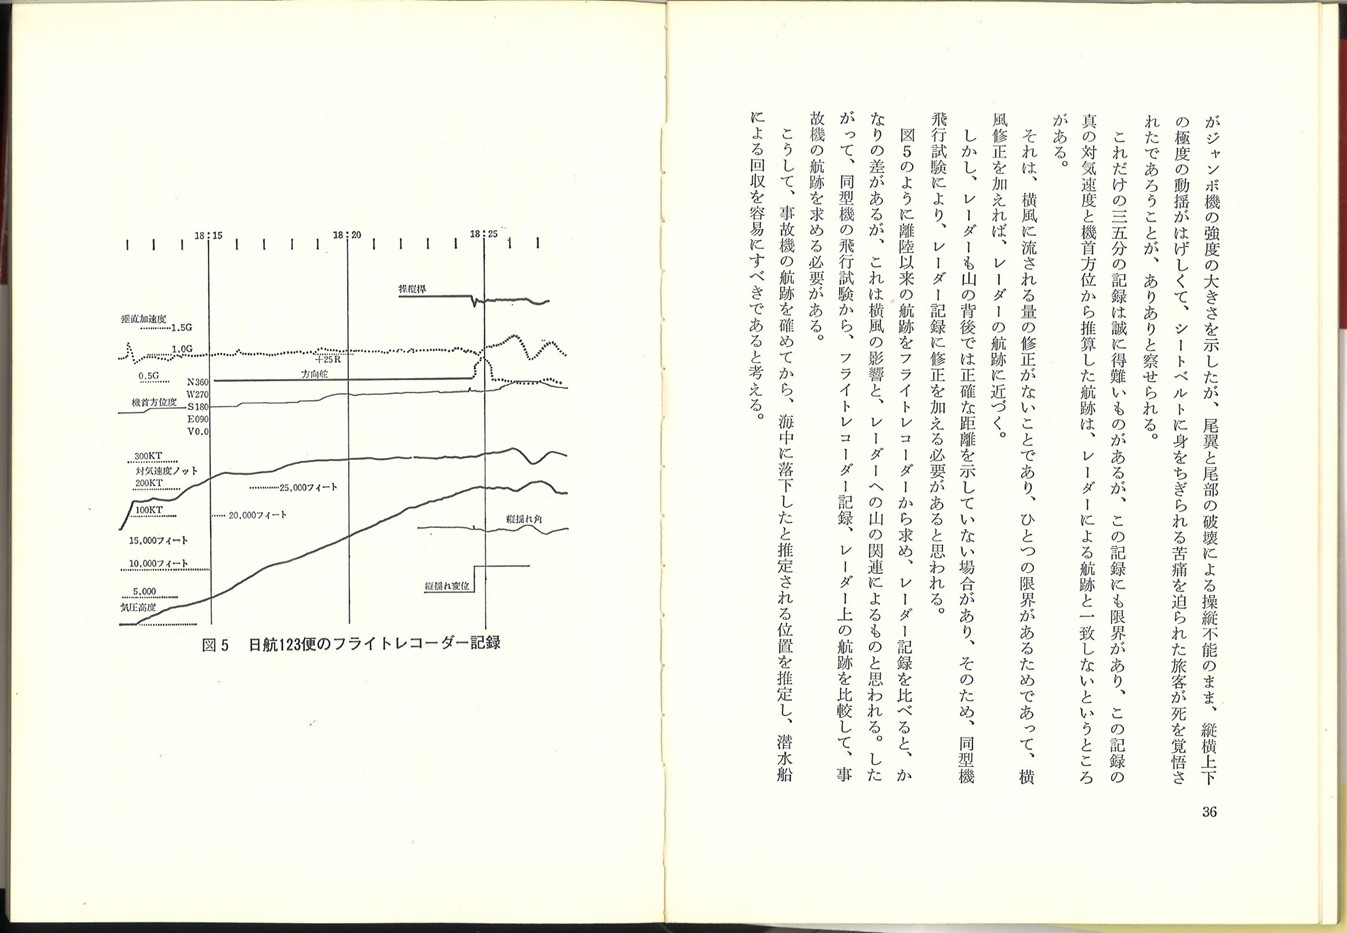 がジャンボ機の強度の大きさを示したが、尾翼と尾部の破壊による操縦不能のまま、縦横上下
の極度の動揺がはげしくて、シートベルトに身をちぎられる苦痛を迫られた旅客が死を覚悟さ
れたであろうことが、ありありと察せられる。
これだけの三五分の記録は誠に得難いものがあるが、この記録にも限界があり、この記録の
真の対気速度と機首方位から推算した航跡は、レーダーによる航跡と一致しないというところ
がある。
それは、横風に流される量の修正がないことであり、ひとつの限界があるためであって、横
風修正を加えれば、レーダーの航跡に近づく。
しかし、レーダーも山の背後では正確な距離を示していない場合があり、そのため、同型機
飛行試験により、レーダー記録に修正を加える必要があると思われる。
図5のように離陸以来の航跡をフライトレコーダーから求め、レーダー記録を比べると、か
なりの差があるが、これは横風の影響と、レーダーへの山の関連によるものと思われる。した
がって、同型機の飛行試験から、フライトレコーダー記録、レーダー上の航跡を比較して、事
故機の航跡を求める必要がある。
こうして、事故機の航跡を確めてから、海中に落下したと推定される位置を推定し、潜水船
による回収を容易にすべきであると考える。
36
18:15
18:20
18:25
操縦桿
垂直加速度
1.5G
1.0G
+25R
0.5G
方向舵
N360
W270
機首方位度
S180
E090
V0.0
300KT
対気速度ノット
200KT
25,000フィート
100KT
20,000フィート
縦揺れ角
15,000フィート
10,000フィート
縦揺れ変位
5,000
気圧高度
図5 日航123便のフライトレコーダー記録